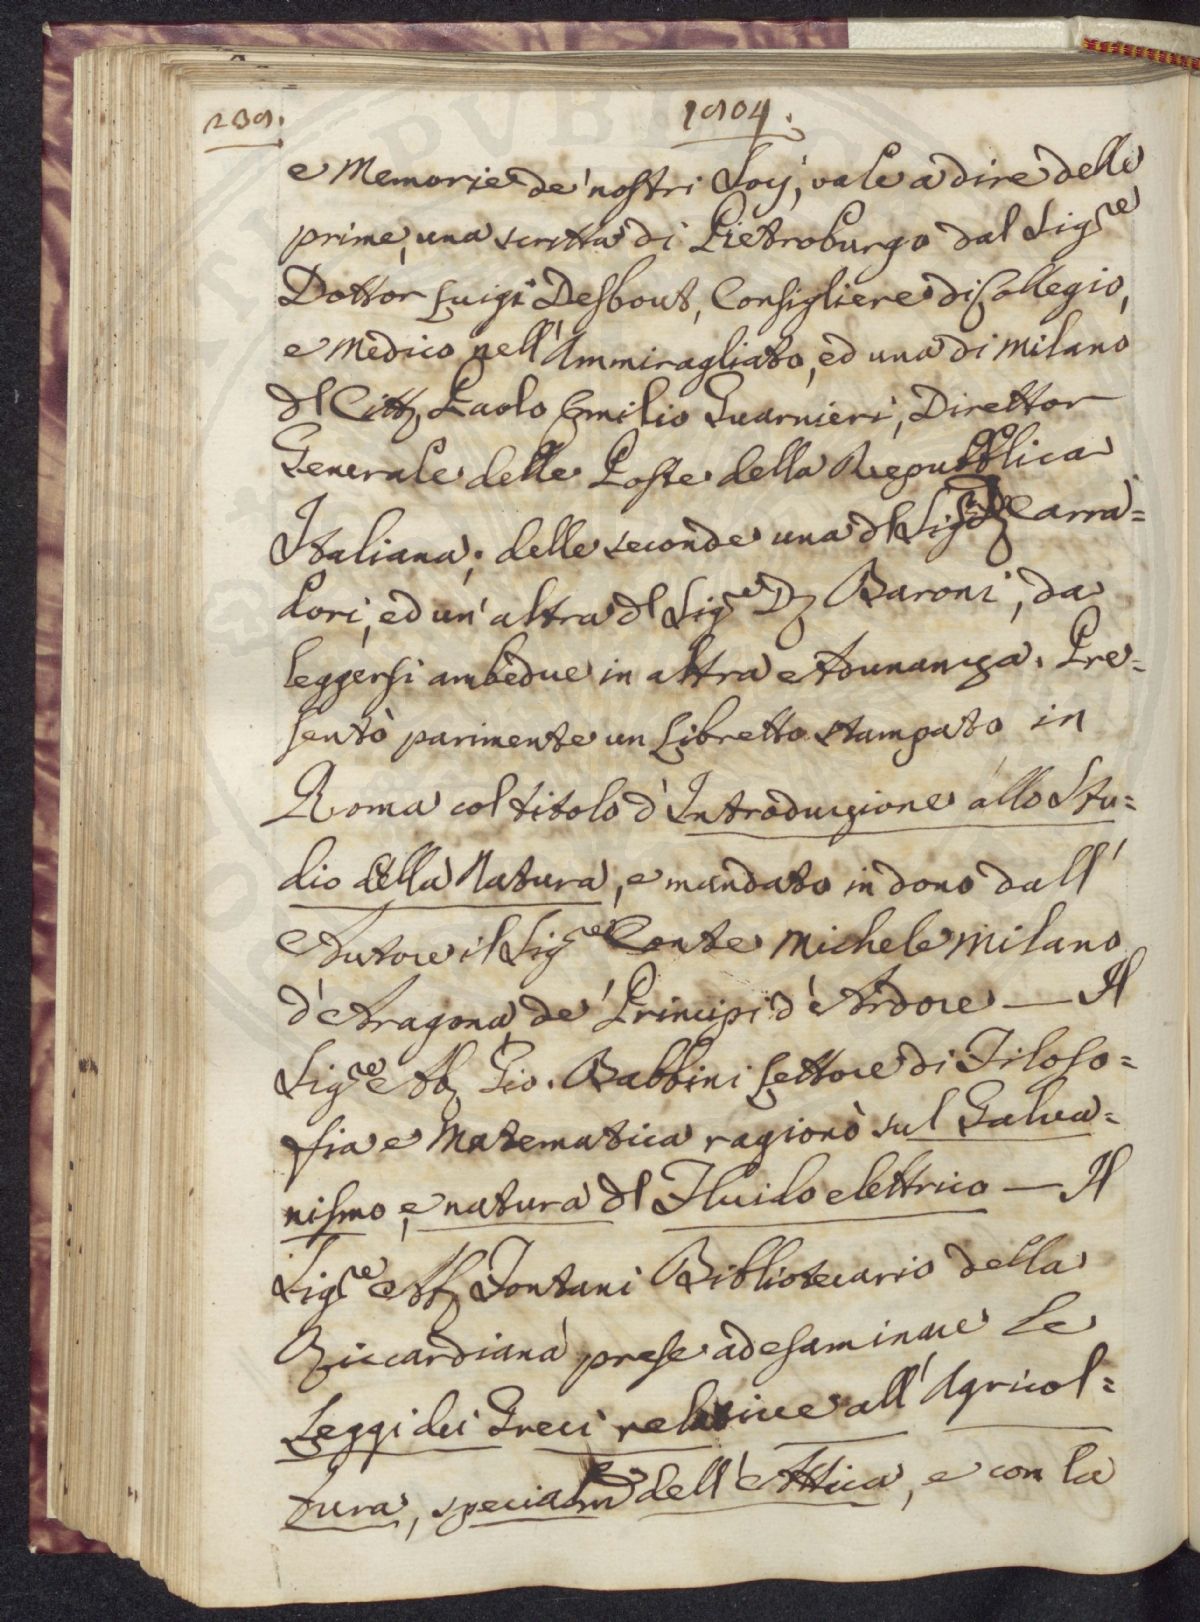 239. 1804.
e Memorie de' nostri Socj, vale a dire delle
prime, una scritta di Pietroburgo dal Sig.re
Dottor Luigi Desbout, Consigliere di Collegio,
e Medico nell'Ammiragliato, ed una di Milano
dl Citt. Paolo Emilio Guarnieri, Direttor
Generale delle Poste della Repubblica
Italiana; delle seconde una dl Sig. D. Carra=
dori, ed un' altra dl Sig.re D. Baroni, da
leggersi ambedue in altra Adunanza. Pre=
sentò parimente un Libretto stampato in
Roma col titolo d'Introduzione allo Stu=
dio della Natura, e mandato in dono dall'
Autore il Sig.re Conte Michele Milano
d'Aragona de' Principi d'Ardore — Il
Sig.re Ab. Gio. Babbini Lettore di Filoso=
fia e Matematica ragionò sul Galva=
nismo, e natura dl Fluido elettrico — Il
Sig.re Ab. Fontani Bibliotecario della
Riccardiana prese ad esaminare Le
Leggi dei Greci relative all'Agricol=
tura, specialm.e dell'Attica, e con la